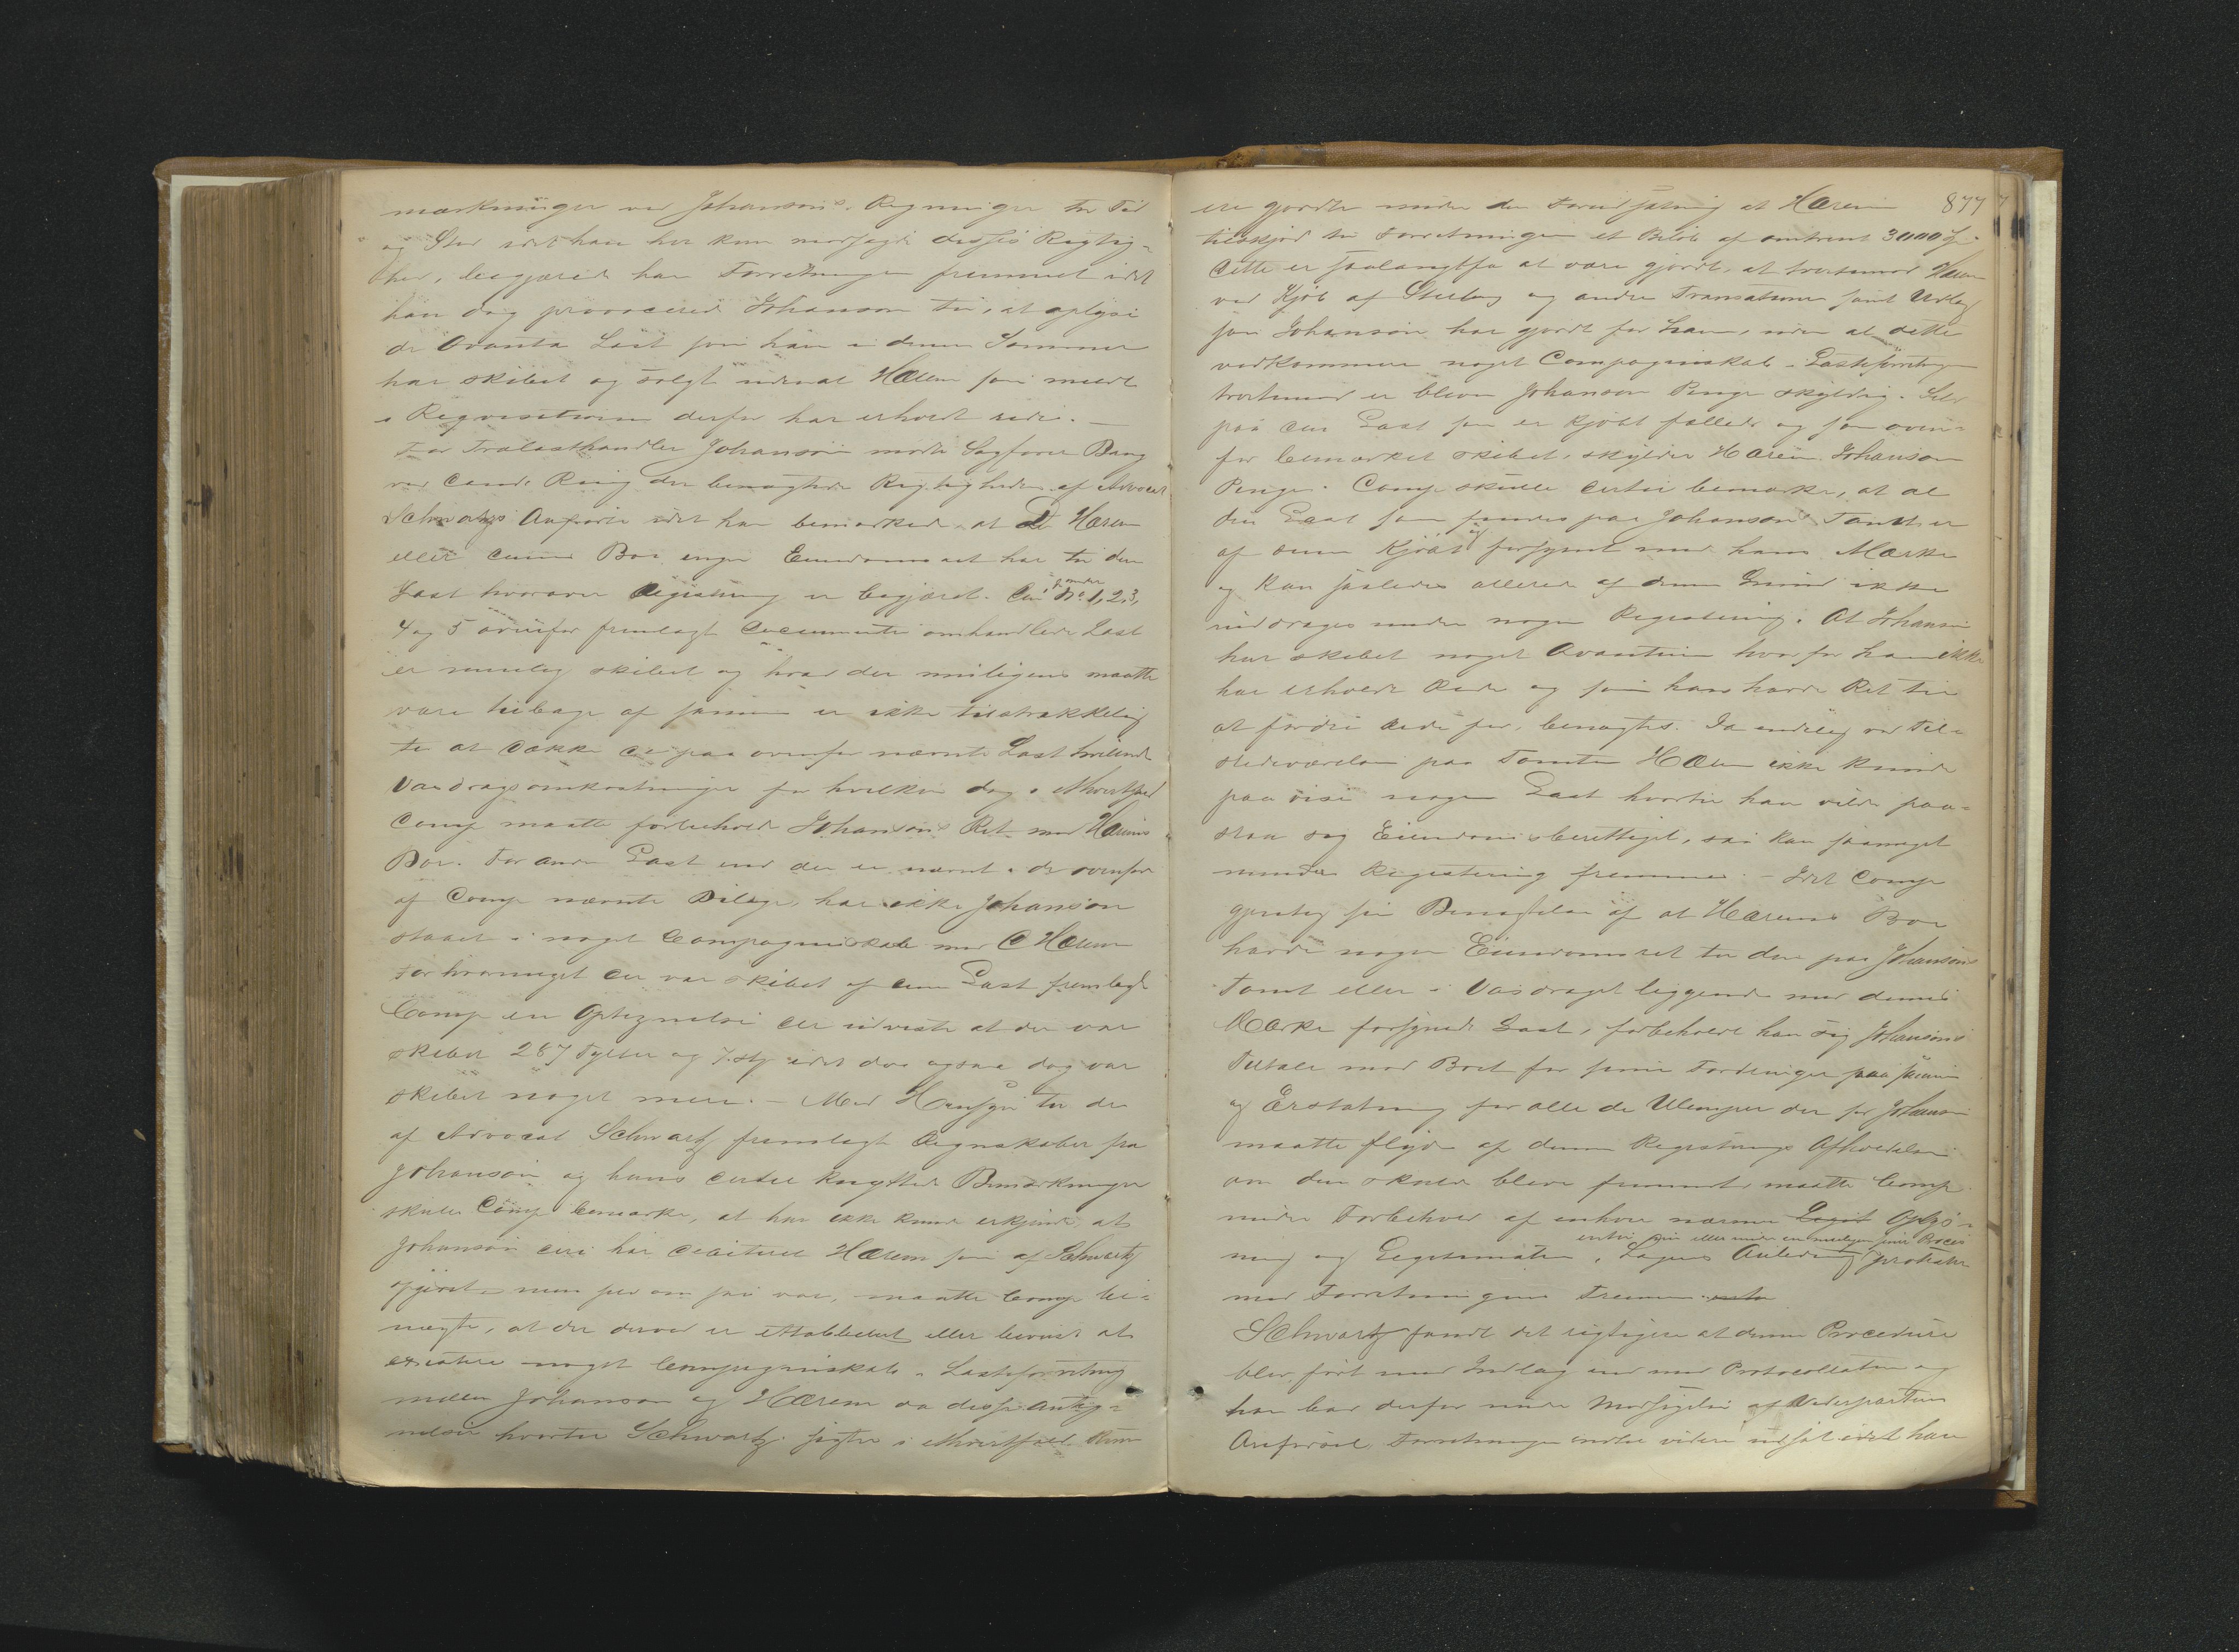 mærkninger ved Johansons Regninger til Tid
og Sted idet han her kun modsagde disses Rigtig-
hed, begjærede han Forretningen fremmet idet
han dog provocerede Johanson til, at oplyse
de Avanta Last som han i denne Sommer
har skibet og solgt uden at Hærem som meedt
i Reqvisitionen derfor har erholdt rede. —
For Trælasthandler Johanson mødte Sagfører Bang
ved Cand. Ring der benægtede Rigtigheden af Advocat
Schwartz's Anførte idet han bemærkede at Hærem
eller dennes Bo ingen Eiendomsret har til den
Last hvorover Registrering er begjæret. Den i de under No 1, 2, 3,
4 og 5 ovenfor fremlagte Documenter omhandlede Last
er nemlig skibet og hvad der muligens maatte
være tilbage af samme er ikke tilstrækkelig
til at dække de paa ovenfor nævnte Last hvilende
Vasdragsomkostninger for hvilken dog i ethvert fald
Comp maatte forbeholde Johansons Ret mod Hærems
Bo. For anden Last end den er nævnt i de ovenfor
af Comp nævnte Bilage, har ikke Johanson
staaet i noget Compagniskab med C Hærem
For hvormeget der var skibet af denne Last fremlagde
Comp en Optegnelse der udviste at der var
skibet 287 Tylter og 7 Stk idet der ogsaa dog var
skibet noget mere. – Med Hensyn til de
af Advocat Schwartz fremlagte Regnskaber fra
Johanson og hans dertil knyttede Bemærkninger
skulde Comp bemærke, at han ikke kunde erkjende at
Johanson deri har debiteret Hærem som af Schwartz
opgivet – men selv om saa var, maatte Comp be-
nægte, at der derved er etableret eller bevist at
existere noget Compagniskab i Lastforretning
mellem Johanson og Hærem da disse Anteg-
nelser hvortil Schwartz sigter i ethvert fald kun
ere gjordte under den Forudsætning at Hærem 877
tilskjød til Forretningen et Beløb af omtrent 3000 Spd.
Dette er saalangtfra at være gjordt, at tvertimod Hærem
ved Kjøb af Sterling og andre Transationer samt Udlæg
som Johanson har gjordt for ham, uden at dette
vedkommer noget Compagniskab i Lastforretning
tvertimod er bleven Johanson Penge skyldig. Selv
paa den Last som er kjøbt fælleds og som oven-
for bemærket skibet, skylder Hærem Johanson
Penge. Comp skulde dertil bemærke, at al
den Last som findes paa Johansons Tomt er
af denne kjøbt og forsynet med hans Mærke
og kan saaledes allerede af denne Grund ikke
inddrages under nogen Registrering. At Johanson
har skibet noget Avantum hvorfor han ikke
har erholdt Rede og som han havde Ret til
at fordre Rede for, benægtes. Da endelig ved Til-
stedeværelsen paa Tomten Hærem ikke kunde
paavise nogen Last hvortil han vilde paa-
staa sig Eiendomsberettiget, saa kan saameget
mindre Registrering fremmes. – Idet Comp
gjentog sin Benægtelse af at Hærems Bo
havde nogen Eiendomsret til den paa Johansons
Tomt eller i Vasdraget liggende med dennes
Mærke forsynede Last, forbeholdt han sig Johansons
Tiltale mod Boet for sine Fordringer paa samme
og Erstatning for alle de Ulemper der for Johanson
maatte flyde af denne Registrerings Afholdelse
om den skulde blive fremmet, maatte Comp
under Forbehold af enhver nærmere Legit Oplys-
ning og Legitimation, Sagens Anledning protestere
entre sin eller under en muligens senere Proces
mod Forretningens Fremme
Schwartz fandt det rigtigere at denne Procedure
blev ført med Indlæg end med Protocollation og
han bad derfor under Modsigelse af Vederpartens
Anførsel, Forretningen endnu videre udsat idet han